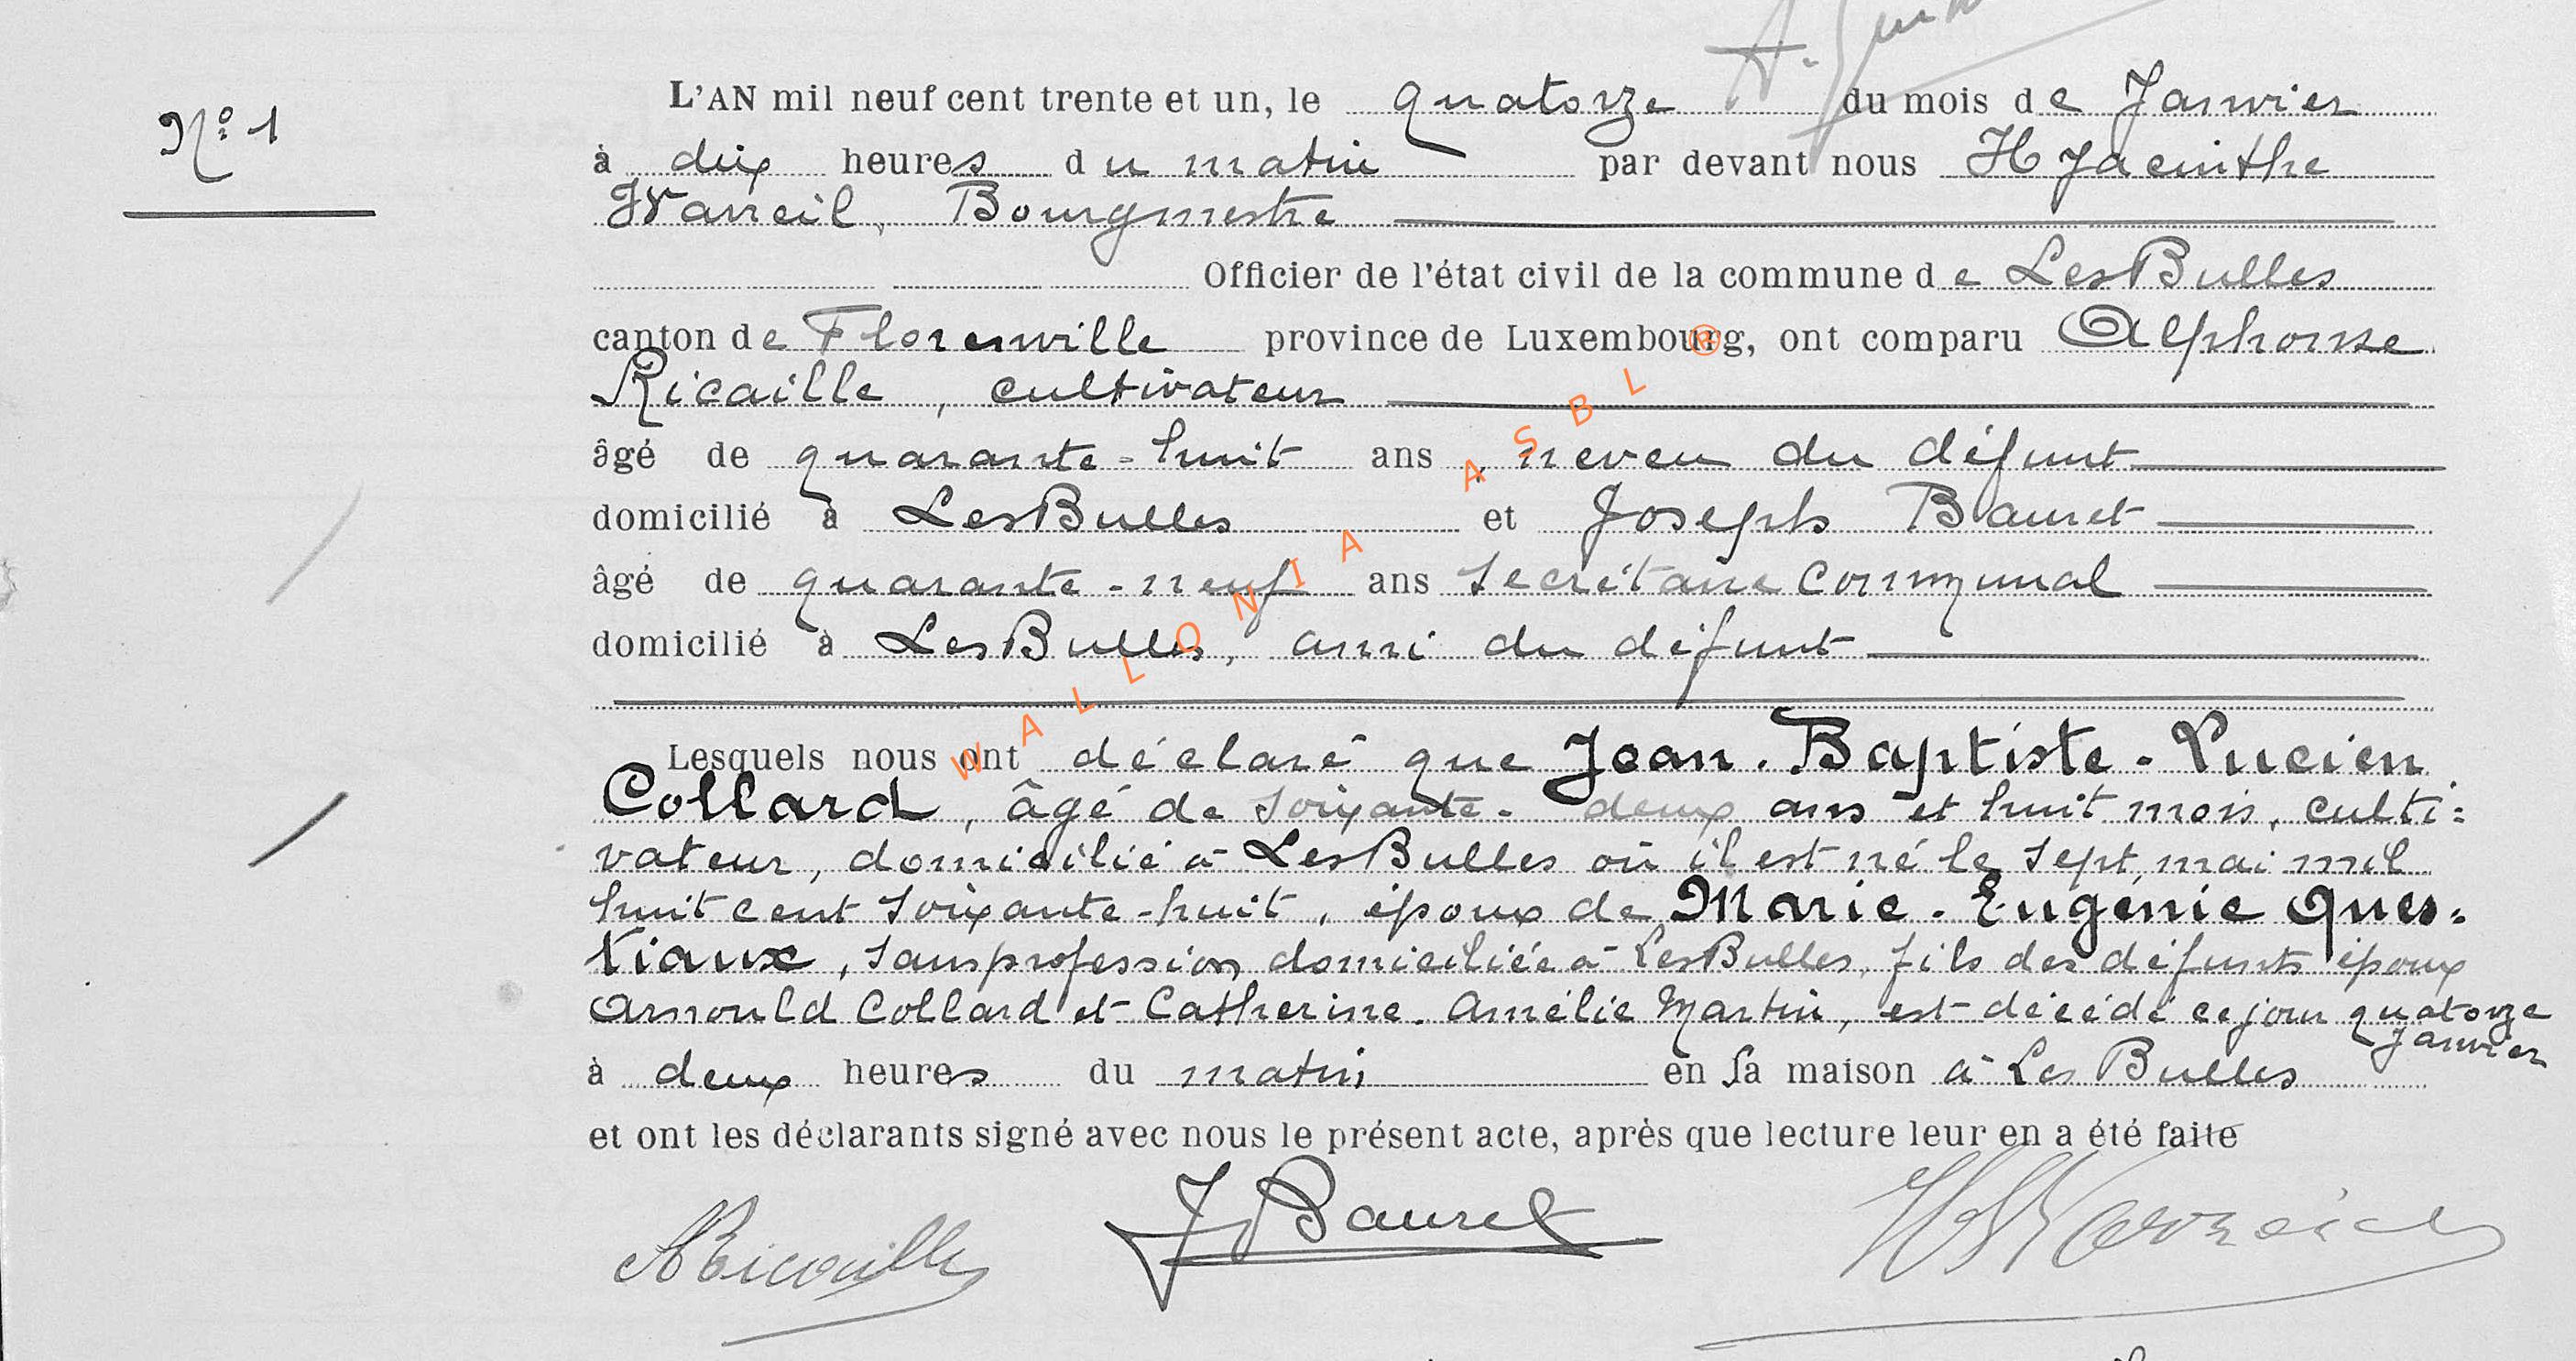 L'AN mil neuf cent trente et un, le quatorze du mois de Janvier
Nº 1
à dix heures du matin par devant nous Hyacinthe
Warreil, Bourgmestre
Officier de l'état civil de la commune de LesBulles
canton de Florenville province de Luxembourg, ont comparu Alphonse
Ricaille, cultivateur
âgé de quarante-huit ans, neveu du défunt
domicilié à LesBulles et Joseph Bauret
âgé de quarante-neuf ans secrétaire communal
domicilié à LesBulles, ami du défunt
WALLONIA ASBL ®
Lesquels nous ont déclaré que Jean-Baptiste-Lucien
Collard, âgé de soixante-deux ans et huit mois, culti=
vateur, domicilié à LesBulles où il est né le sept mai mil
huit cent soixante-huit, époux de Marie-Eugénie Ques=
tiaux, sans profession domiciliée à LesBulles, fils des défunts époux
Arnould Collard et Catherine-Amélie Martin, est décédé ce jour quatorze
Janvier
à deux heures du matin en sa maison à Les Bulles
et ont les déclarants signé avec nous le présent acte, après que lecture leur en a été faite
ARicaille J Bauret H Warreil